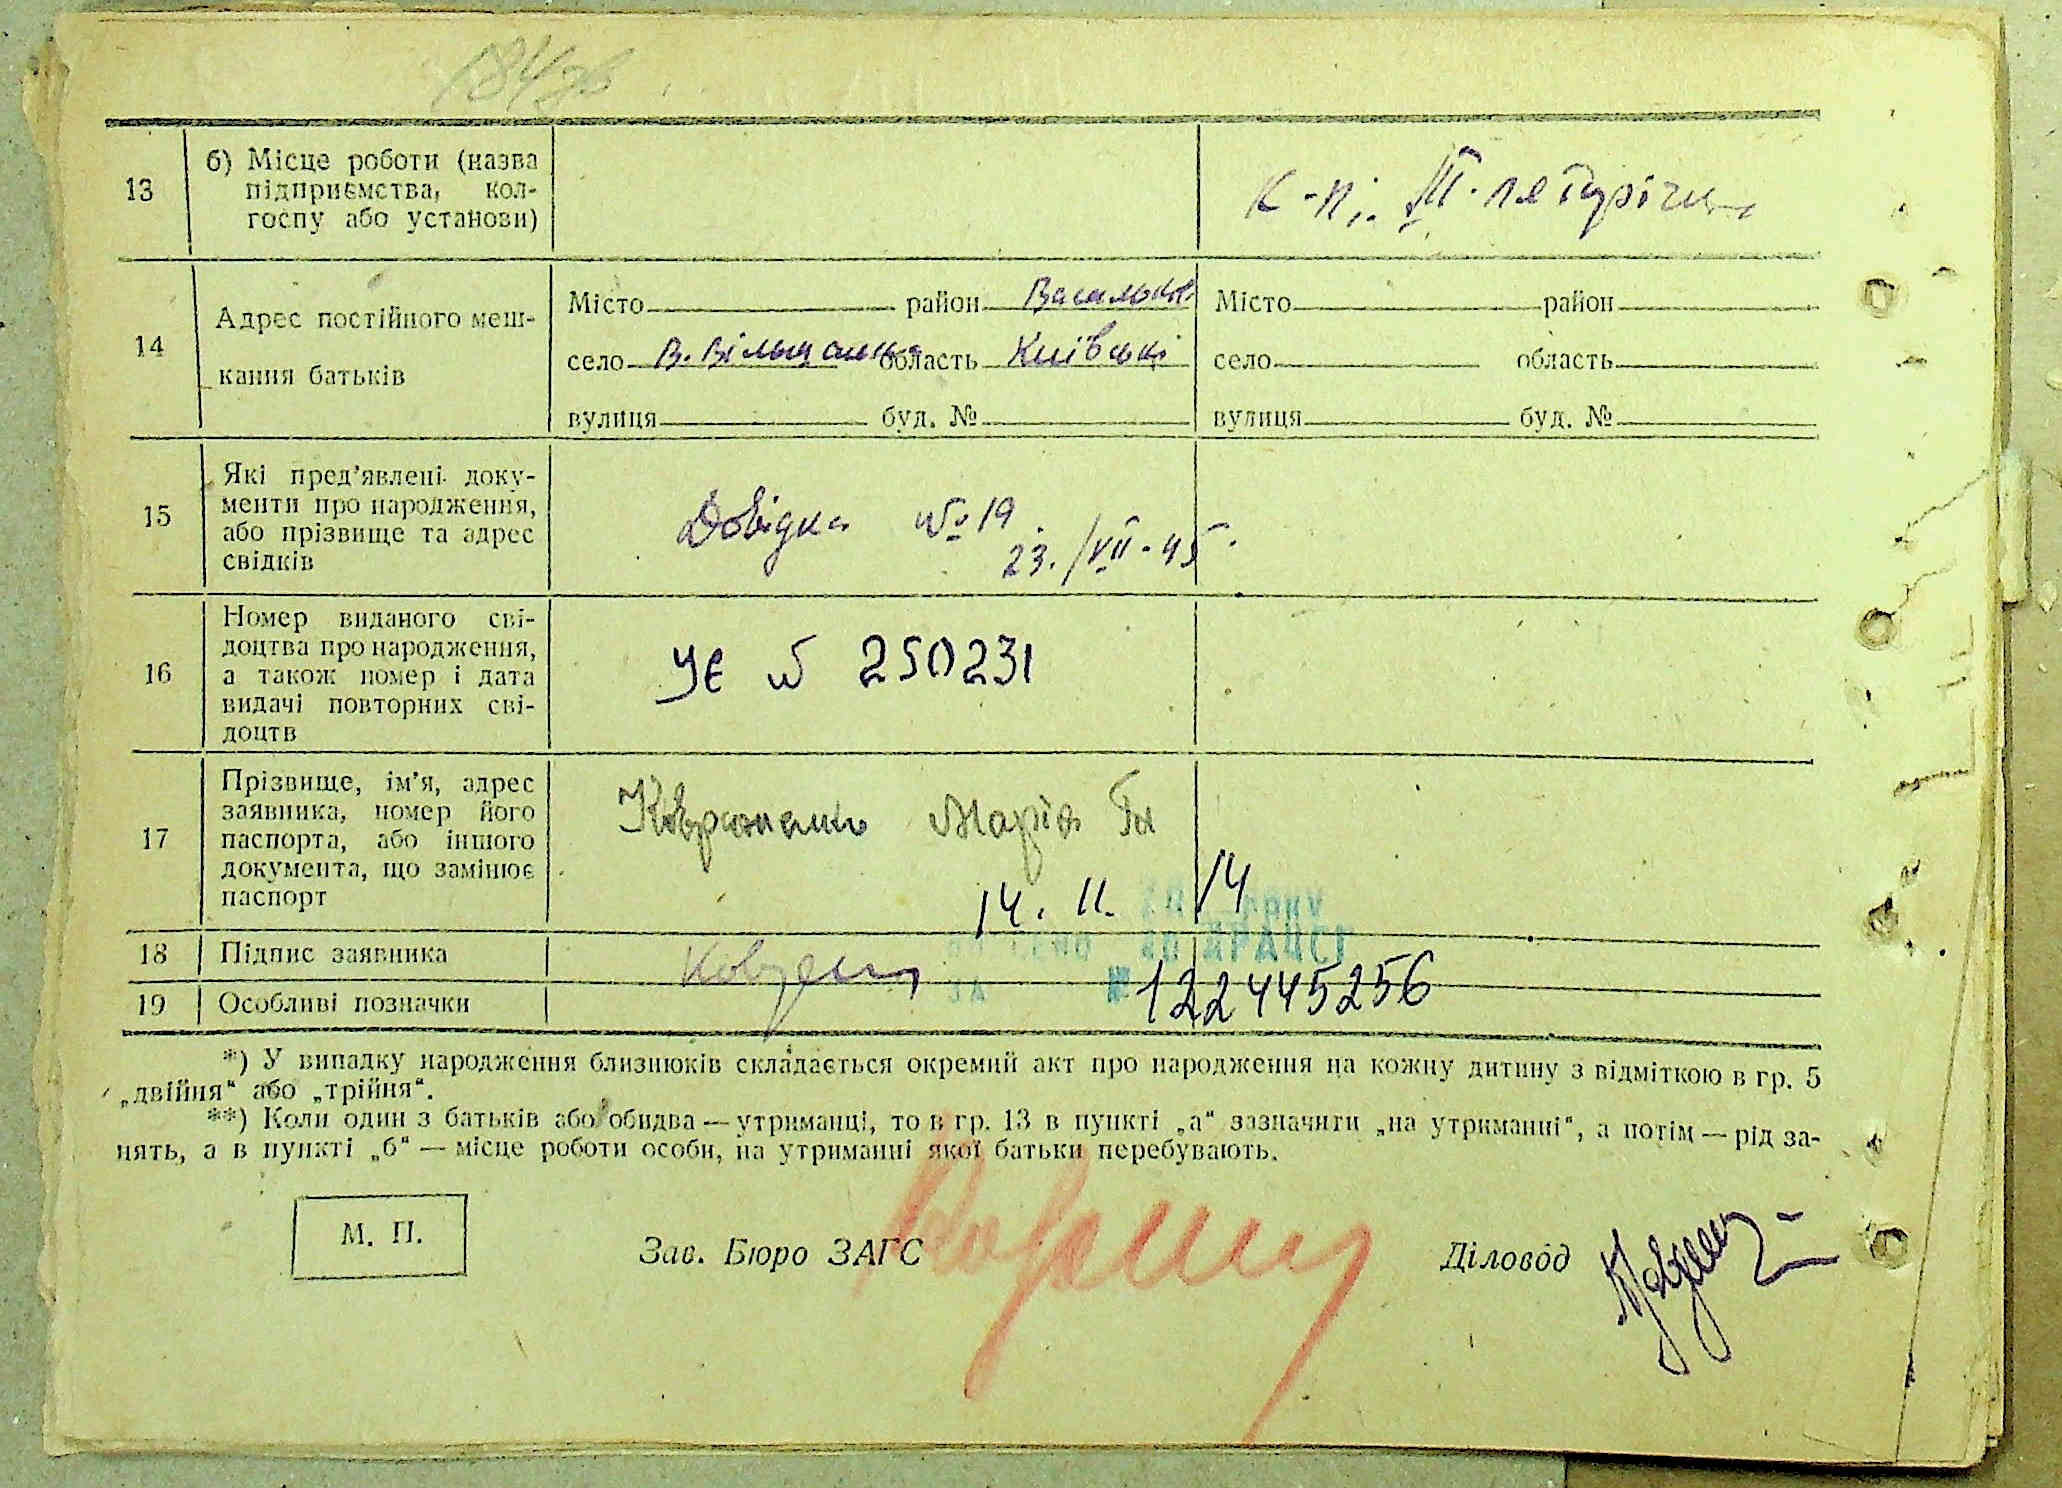 184 зв
13
б) Місце роботи (назва
підприємства, кол-
госпу або установи)
к-п і. III-пятирічки
14
Адрес постійного меш-
кання батьків
Місто район Васильків.
село В. Вільшанка область Київські
вулиця буд. №
Місто район
село область
вулиця буд. №
15
Які пред'явлені доку-
менти про народження,
або прізвище та адрес
свідків
Довідка № 19
23./VII-45.
16
Номер виданого сві-
доцтва про народження,
а також номер і дата
видачі повторних сві-
доцтв
УЄ № 250231
17
Прізвище, ім'я, адрес
заявника, номер його
паспорта, або іншого
документа, що замінює
паспорт
Марія
14. 11. 14
20 року
до ДРАЦСГ
18
Підпис заявника
ЗА № 122445256
19
Особливі позначки
*) У випадку народження близнюків складається окремий акт про народження на кожну дитину з відміткою в гр. 5
„двійня“ або „трійня“.
**) Коли один з батьків або обидва — утриманці, то в гр. 13 в пункті „а“ зазначити „на утриманні“, а потім — рід за-
нять, а в пункті „б“ — місце роботи особи, на утриманні якої батьки перебувають.
М. П.
Зав. Бюро ЗАГС
Діловод